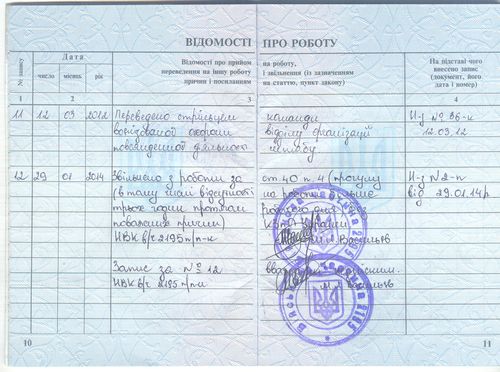 ВІДОМОСТІ ПРО РОБОТУ
№ запису
Дата
число місяць рік
Відомості про прийом на роботу,
переведення на іншу роботу і звільнення (із зазначенням
причин і посиланням на статтю, пункт закону)
На підставі чого
внесено запис
(документ, його
дата і номер)
1 2 3 4
11 12 03 2012 Переведено стрільцем команди Н-з № 36-к
воєнізованої охорони відділу організації 12.03.12
повсякденної діяльності штабу
12 29 01 2014 Звільнено з роботи за ст 40 п. 4 (прогулу Н-з № 2-п
(в тому числі відсутності на роботі більше від 29.01.14р
трьох годин протягом робочого дня без
поважних причин) КЗпП України
НВК в/ч 2195 п/п-к М. Л. Васильєв
Запис за № 12
НВК в/ч 2195
Військова частина 2195
Військова частина 2195
10 11